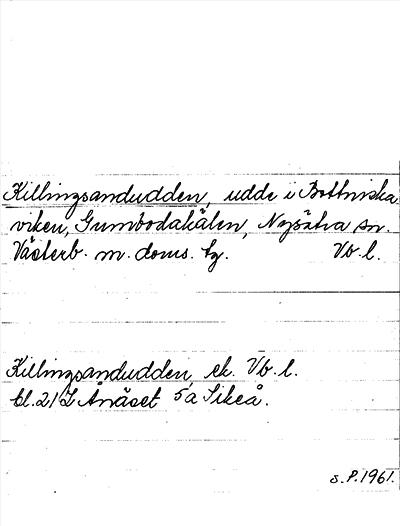 Killingsandudden, udde i Bottniska
viken, Gumbodakälen, Nysätra sn.
Västerb. m. doms. tg. Vb. l.
Killingsandudden, ek. Vb. l.
bl. 21 L Ånäset 5a Sikeå.
s. P. 1961.